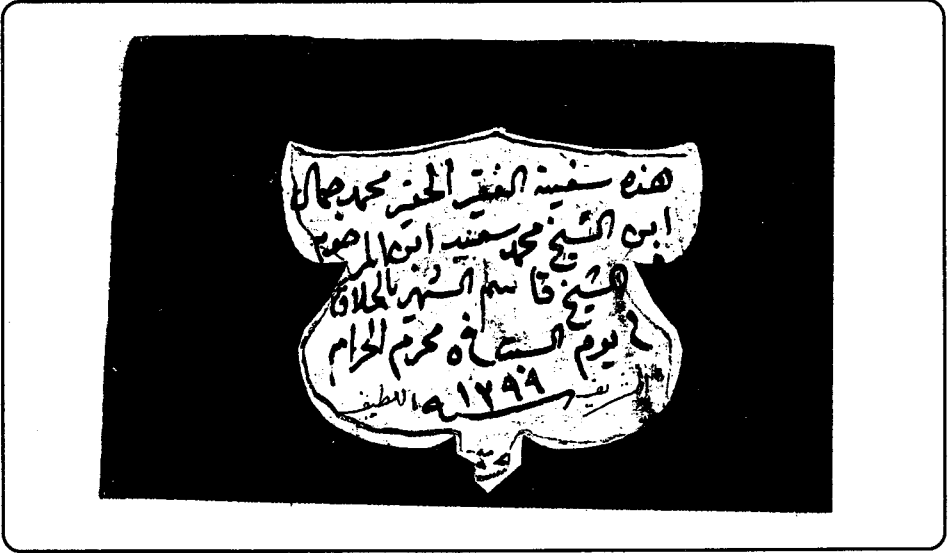 هذه سفينة الفقير الحقير محمد جمال
ابن الشيخ محمد سعيد ابن المرحوم
الشيخ قاسم الشهير بالحلاق
في يوم السبت في ٥ محرم الحرام
سنة ١٢٩٩
اللطيف